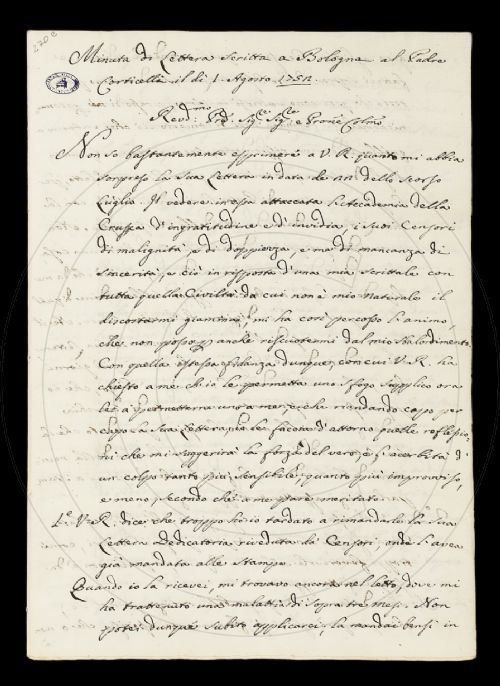 270 c
Minuta di Lettera Scritta a Bologna al Padre
Corticelli il dì 1. Agosto 1752.
Revd.mo Pre. Sig.re Sig.re e Prone Colmo
Non so bastantemente esprimere a V. R. quanto mi abbia
sorpreso la Sua Lettera in data de dello scorso
Luglio. Il vedere in essa attaccata l'Accademia della
Crusca d'ingratitudine e d'invidia, i suoi Censori
di malignità e di doppiezza, e me di mancanza di
sincerità, e ciò in risposta d'una mia scrittale con
tutta quella Civiltà da cui non è mio naturale il
discostarmi giammai, mi ha così percosso l'animo,
che non posso per anche riscuotermi dal mio sbalordimento.
Con quella istessa fidanza dunque, con cui V. R. ha
chiesto a me ch'io le permetta uno sfogo supplico ora
lei a permetterne uno a me, e che riandando capo per
capo la Sua Lettera, io le faccia d'attorno quelle reflessio-
ni che mi suggerirà la forza del vero, e l'acerbità d'
un colpo tanto più sensibile, quanto più improvviso,
e meno, secondo che a me pare meritato.
1.o V. R. dice che troppo si è tardato a rimandarle la Sua
Lettera Dedicatoria riveduta da' Censori, onde l'avea
già mandata alle Stampe.
Quando io la ricevei, mi trovavo ancora nel letto, dove mi
ha trattenuto una malattia di sopra tre mesi. Non
potei dunque subito applicarci, la mandai bensì in